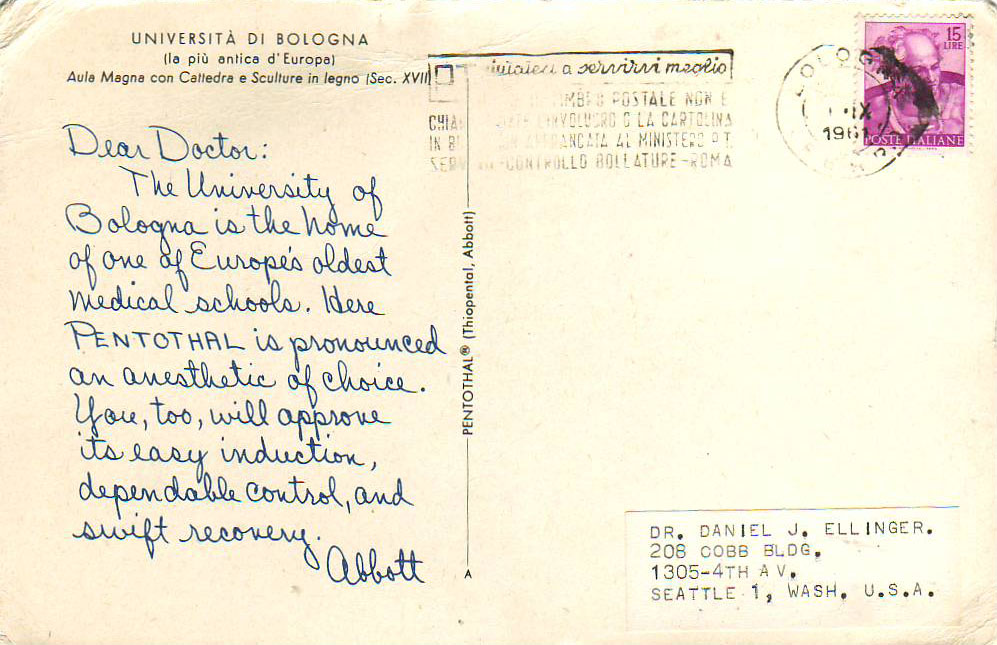 UNIVERSITÀ DI BOLOGNA
(la più antica d'Europa)
Aula Magna con Cattedra e Sculture in legno (Sec. XVII)
Dear Doctor:
The University of
Bologna is the home
of one of Europe's oldest
medical schools. Here
PENTOTHAL is pronounced
an anesthetic of choice.
You, too, will approve
its easy induction,
dependable control, and
swift recovery.
Abbott
PENTOTHAL® (Thiopental, Abbott)
A
PT a servirvi meglio
POSTALE NON E
O LA CARTOLINA
IN AL MINISTERO P.T.
CONTROLLO BOLLATURE-ROMA
BOLOGNA
IX
1961
15
LIRE
POSTE ITALIANE
DR. DANIEL J. ELLINGER.
208 COBB BLDG.
1305-4TH AV.
SEATTLE 1, WASH. U.S.A.